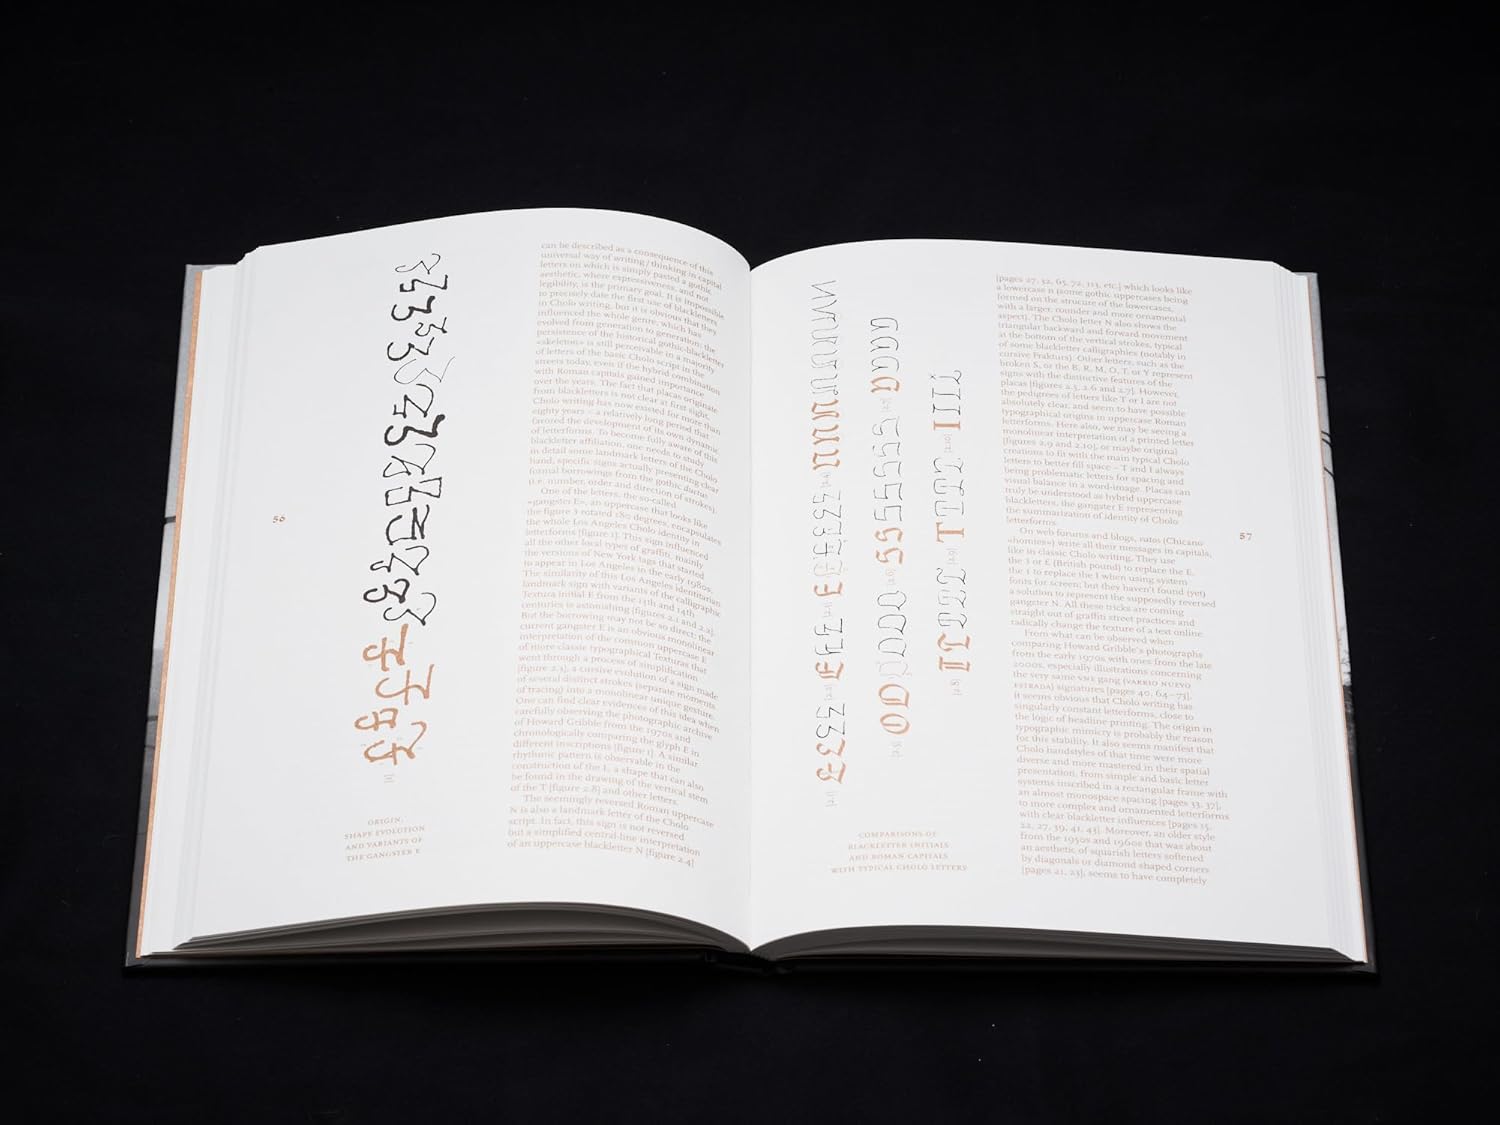 can be described as a consequence of this
universal way of writing / thinking in capital
letters on which is simply pasted a gothic
aesthetic, where expressiveness, and not
legibility, is the primary goal. It is impossible
to precisely date the first use of blackletters
in Cholo writing, but it is obvious that they
influenced the whole genre, which has
evolved from generation to generation: the
persistence of the historical gothic-blackletter
«skeleton» is still perceivable in a majority
of letters of the basic Cholo script in the
streets today, even if the hybrid combination
with Roman capitals gained importance
over the years. The fact that placas originate
from blackletters is not clear at first sight.
Cholo writing has now existed for more than
eighty years – a relatively long period that
favored the development of its own dynamic
of letterforms. To become fully aware of this
blackletter affiliation, one needs to study
in detail some landmark letters of the Cholo
hand, specific signs actually presenting clear
formal borrowings from the gothic ductus
(i.e. number, order and direction of strokes).
One of the letters, the so-called
«gangster E», an uppercase that looks like
the figure 3 rotated 180 degrees, encapsulates
the whole Los Angeles Cholo identity in
letterforms [figure 1]. This sign influenced
all the other local types of graffiti, mainly
the versions of New York tags that started
to appear in Los Angeles in the early 1980s.
The similarity of this Los Angeles identitarian
landmark sign with variants of the calligraphic
Textura initial E from the 13th and 14th
centuries is astonishing [figures 2.1 and 2.2].
But the borrowing may not be so direct: the
current gangster E is an obvious monolinear
interpretation of the common uppercase E
of more classic typographical Texturas that
went through a process of simplification
[figure 2.3], a cursive evolution of a sign made
of several distinct strokes (separate moments
of tracing) into a monolinear unique gesture.
One can find clear evidences of this idea when
carefully observing the photographic archive
of Howard Gribble from the 1970s and
chronologically comparing the glyph E in
different inscriptions [figure 1]. A similar
rhythmic pattern is observable in the
construction of the L, a shape that can also
be found in the drawing of the vertical stem
of the T [figure 2.8] and other letters.
The seemingly reversed Roman uppercase
N is also a landmark letter of the Cholo
script. In fact, this sign is not reversed
but a simplified central-line interpretation
of an uppercase blackletter N [figure 2.4]
56
[1]
ORIGIN,
SHAPE EVOLUTION
AND VARIANTS OF
THE GANGSTER E
[2.1]
[2.2]
[2.3]
[2.4]
[2.5]
[2.6]
[2.7]
[2.8]
[2.9]
[2.10]
COMPARISONS OF
BLACKLETTER INITIALS
AND ROMAN CAPITALS
WITH TYPICAL CHOLO LETTERS
[pages 27, 32, 65, 72, 113, etc.] which looks like
a lowercase n (some gothic uppercases being
formed on the strucure of the lowercases,
with a larger, rounder and more ornamental
aspect). The Cholo letter N also shows the
triangular backward and forward movement
at the bottom of the vertical strokes, typical
of some blackletter calligraphies (notably in
cursive Frakturs). Other letters, such as the
broken S, or the B, R, M, O, T, or Y represent
signs with the distinctive features of the
placas [figures 2.5, 2.6 and 2.7]. However,
the pedigrees of letters like T or I are not
absolutely clear, and seem to have possible
typographical origins in uppercase Roman
letterforms. Here also, we may be seeing a
monolinear interpretation of a printed letter
[figures 2.9 and 2.10], or maybe original
creations to fit with the main typical Cholo
letters to better fill space – T and I always
being problematic letters for spacing and
visual balance in a word-image. Placas can
truly be understood as hybrid uppercase
blackletters, the gangster E representing
the summarization of identity of Cholo
letterforms.
On web forums and blogs, vatos (Chicano
«homies») write all their messages in capitals,
like in classic Cholo writing. They use
the 3 or £ (British pound) to replace the E,
the 1 to replace the I when using system
fonts for screen; but they haven't found (yet)
a solution to represent the supposedly reversed
gangster N. All these tricks are coming
straight out of graffiti street practices and
radically change the texture of a text online.
From what can be observed when
comparing Howard Gribble's photographs
from the early 1970s with ones from the late
2000s, especially illustrations concerning
the very same VNE gang (VARRIO NUEVO
ESTRADA) signatures [pages 40, 64–73],
it seems obvious that Cholo writing has
singularly constant letterforms, close to
the logic of headline printing. The origin in
typographic mimicry is probably the reason
for this stability. It also seems manifest that
Cholo handstyles of that time were more
diverse and more mastered in their spatial
presentation, from simple and basic letter
systems inscribed in a rectangular frame with
an almost monospace spacing [pages 33, 37],
to more complex and ornamented letterforms
with clear blackletter influences [pages 15,
22, 27, 39, 41, 43]. Moreover, an older style
from the 1950s and 1960s that was about
an aesthetic of squarish letters softened
by diagonals or diamond shaped corners
[pages 21, 23], seems to have completely
57